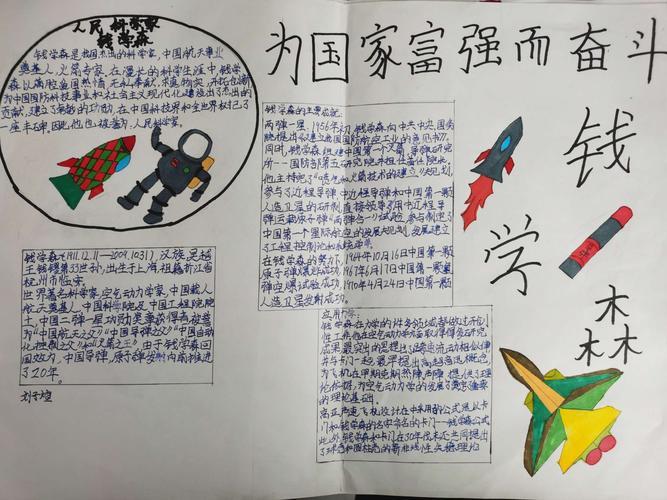 人民科学家
钱学森
钱学森是我国杰出的科学家，中国航天事业
奠基人，火箭专家，在漫长的科学生涯中，钱学
为中国国防科技事业和社会主义现代化建设出了杰出的
贡献，建立了卓越的功勋，在中国科技界和全世界树已了
一座丰碑，因此他也被誉为"人民科学家。
为国家富强而奋斗
钱学森
钱学森的主要成就：
两弹一星，1956年初，钱学森向中共中央、国务
院提出《建立我国国防航空工业的意见书》。
同时，钱学森组建中国第一个火箭、导弹研究所
——国防部第五研究院并担任首任院长。
他主持完了"喷气和火箭技术的建立"规划，
参与了近程导弹、中近程导弹和中国第一颗
人造卫星的研制，直接领导了用中近程导
弹运载原子弹"两弹结合"试验，参与制定了
中国第一个星际航空的发展规划，发展建立
了工程控制论和系统学等。
在钱学森的努力下，1964年10月16日中国第一颗
原子弹爆炸成功，1967年6月17日中国第一颗氢
弹空爆试验成功，1970年4月24日中国第一颗
人造卫星发射成功。
钱学森（1911.12.11—2009.10.31），汉族，吴越
王钱镠第33世孙，出生于上海，祖籍浙江省
杭州市临安。
世界著名科学家，空气动力学家，中国载人
航天奠基人，中国科学院及中国工程院院
士，中国二弹一星功勋奖章获得者，被誉
为"中国航天之父""中国导弹之父""中国自动
化控制之父"和"火箭之王"，由于钱学森回
国效力，中国导弹、原子弹发射向前推进
了20年。
刘子煊
应用力学：
钱学森在力学的许多领域都做过开创
性工作，他在空气动力学方面取得很多研究
成果，最突出的是提出了跨声速流动相似律
并与卡门一起，最早提出高超音速流概念，
为飞机在早期克服热障、声障，提供了理
论依据，为空气动力学的发展了奠定了重要
的理论基础。
高亚声速飞机设计在中采用的公式是以卡
门和钱学森的名字命名的卡门—钱学森公式
此外，钱学森和卡门在30年代末还共同提出